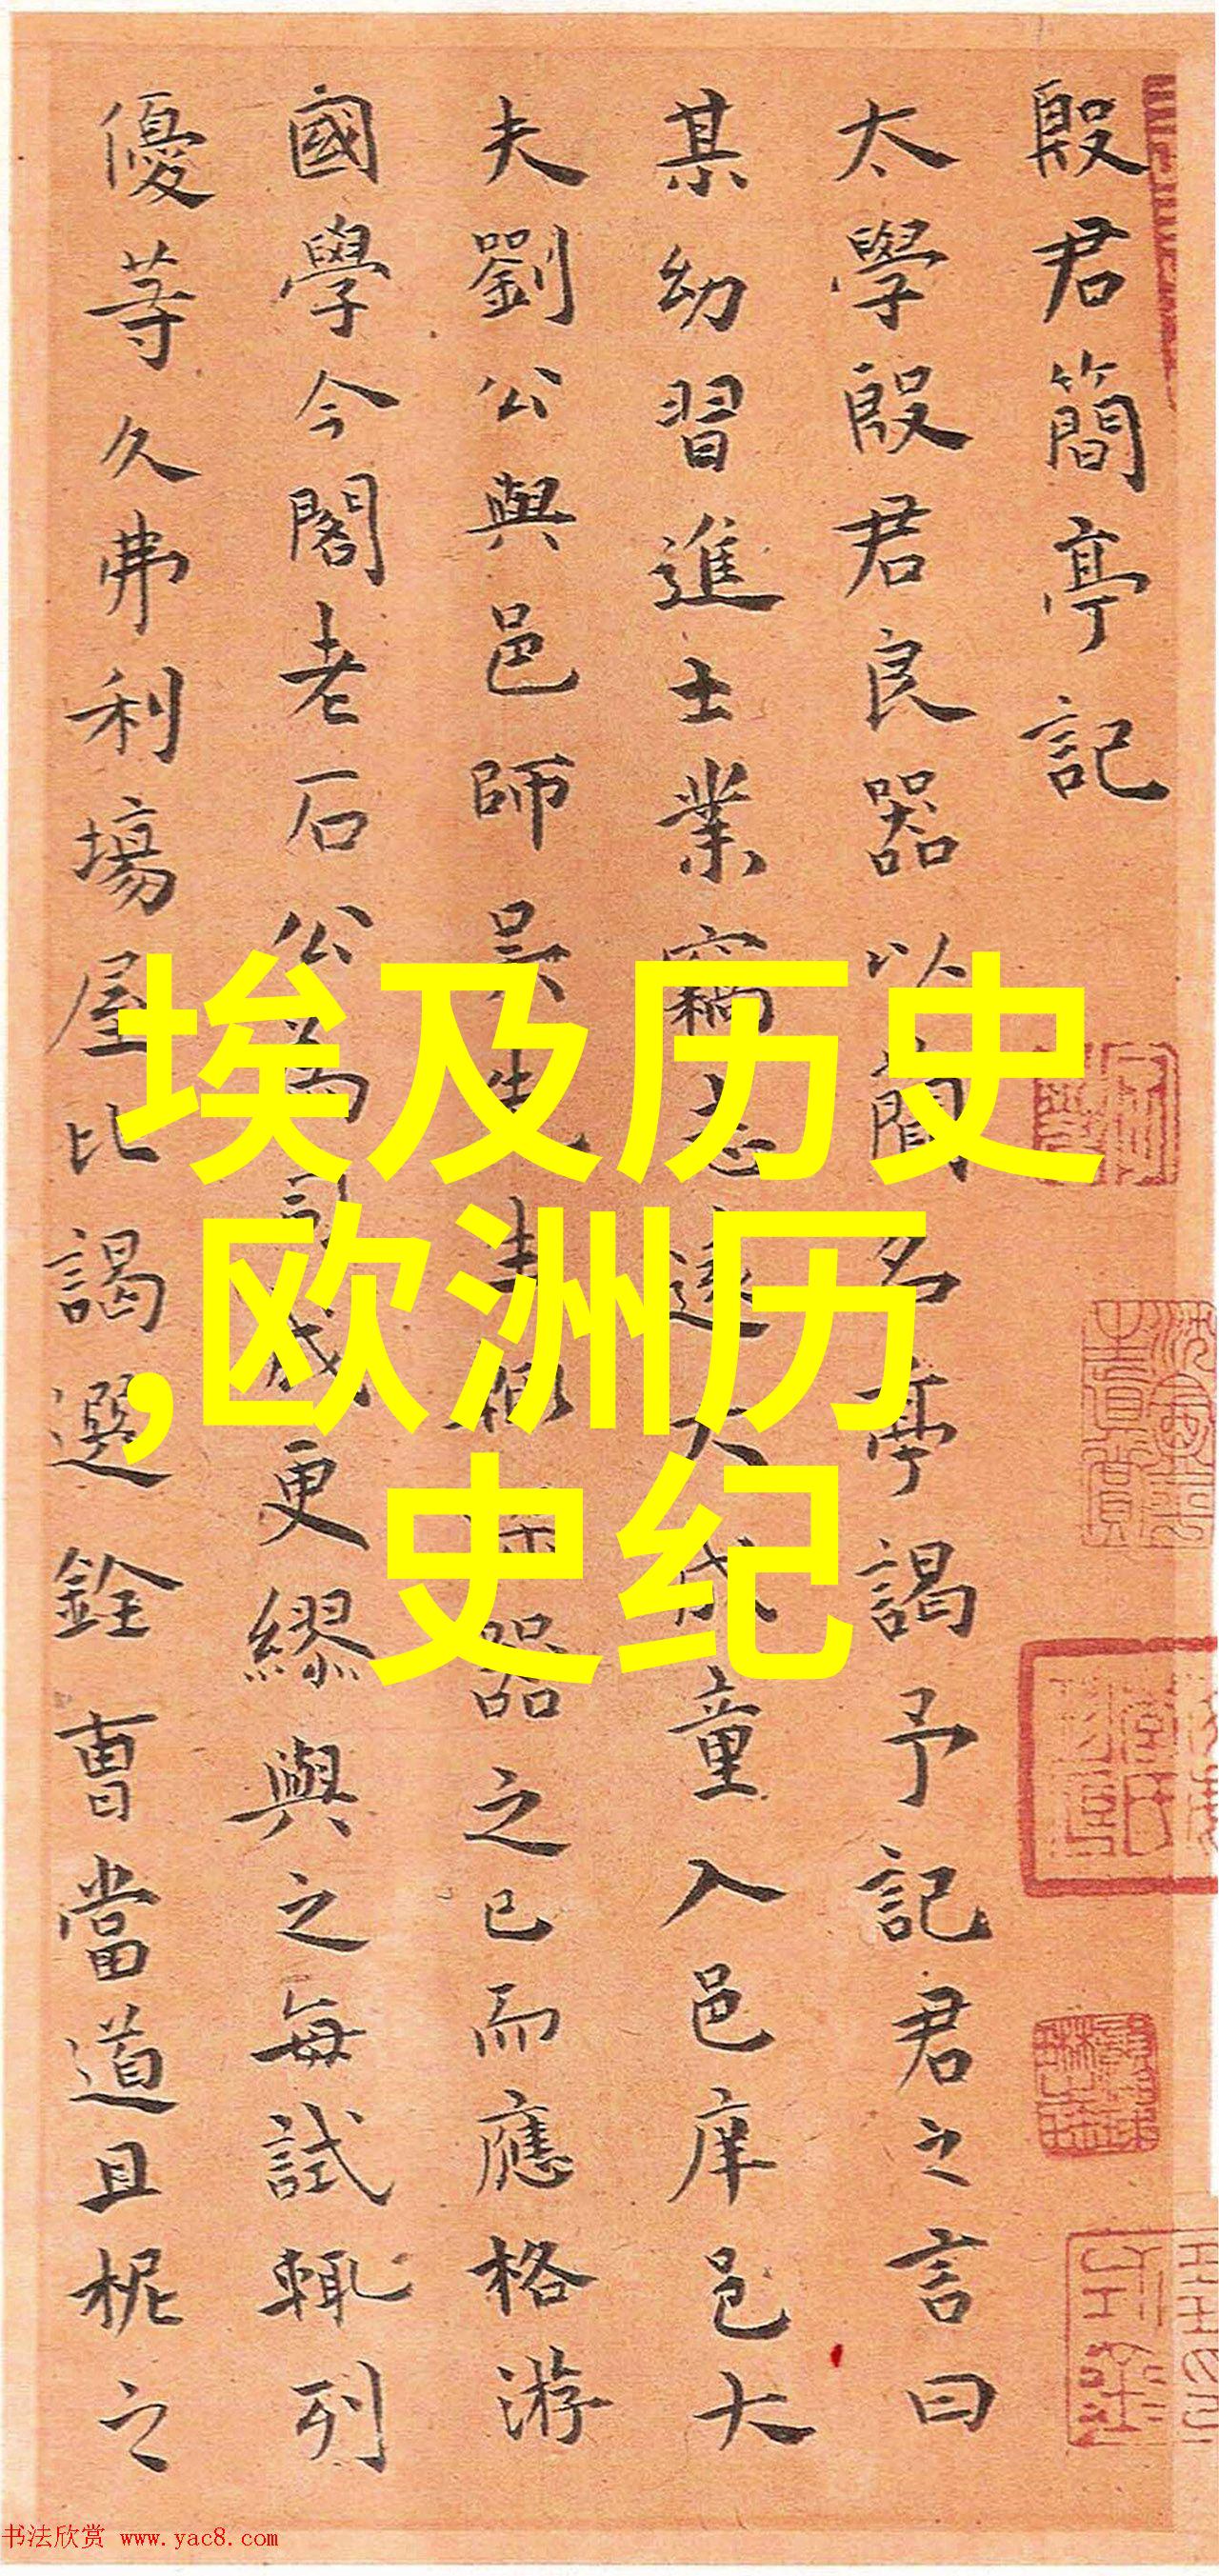 殷君簡亭記
太學殷君良器以簡名亭謁予記君之言曰
某幼習進士業竊志遠大成童入邑庠邑大
夫劉公與邑師吳器之已而應格游
國學今閣老石公為司成更繆與之每試輒列
優等久弗利場屋比謁選銓曹當道且柅之
埃及历史
,欧洲历
史纪
书法欣赏 www.yac8.com